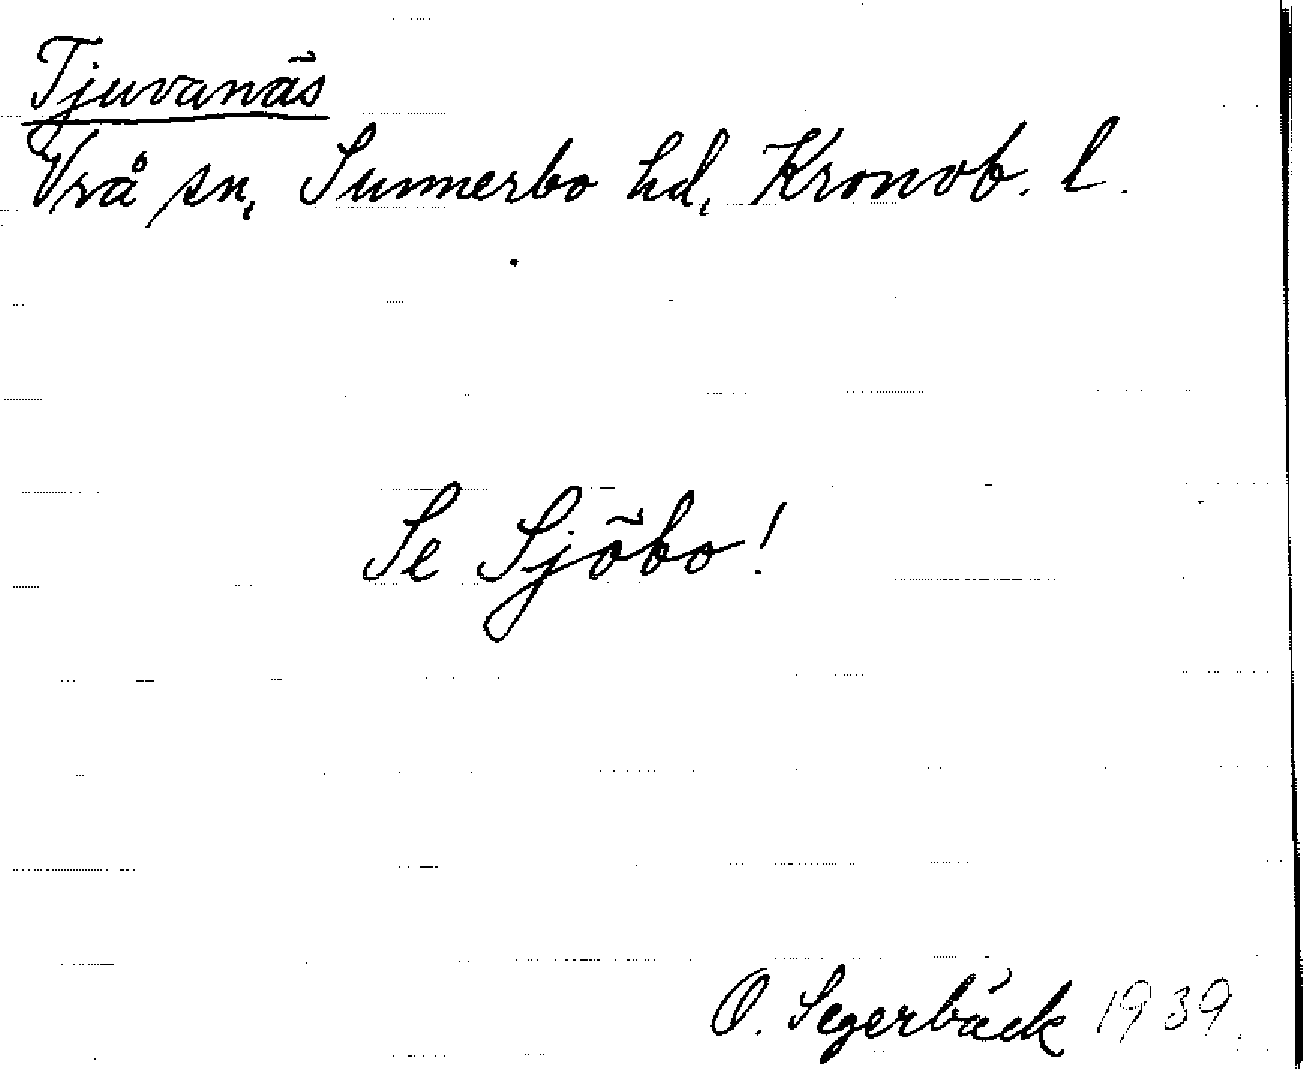 Tjuvanäs
Vrå sn, Sunnerbo hd, Kronob. l.
Se Sjöbo!
O. Segerbäck 1939.